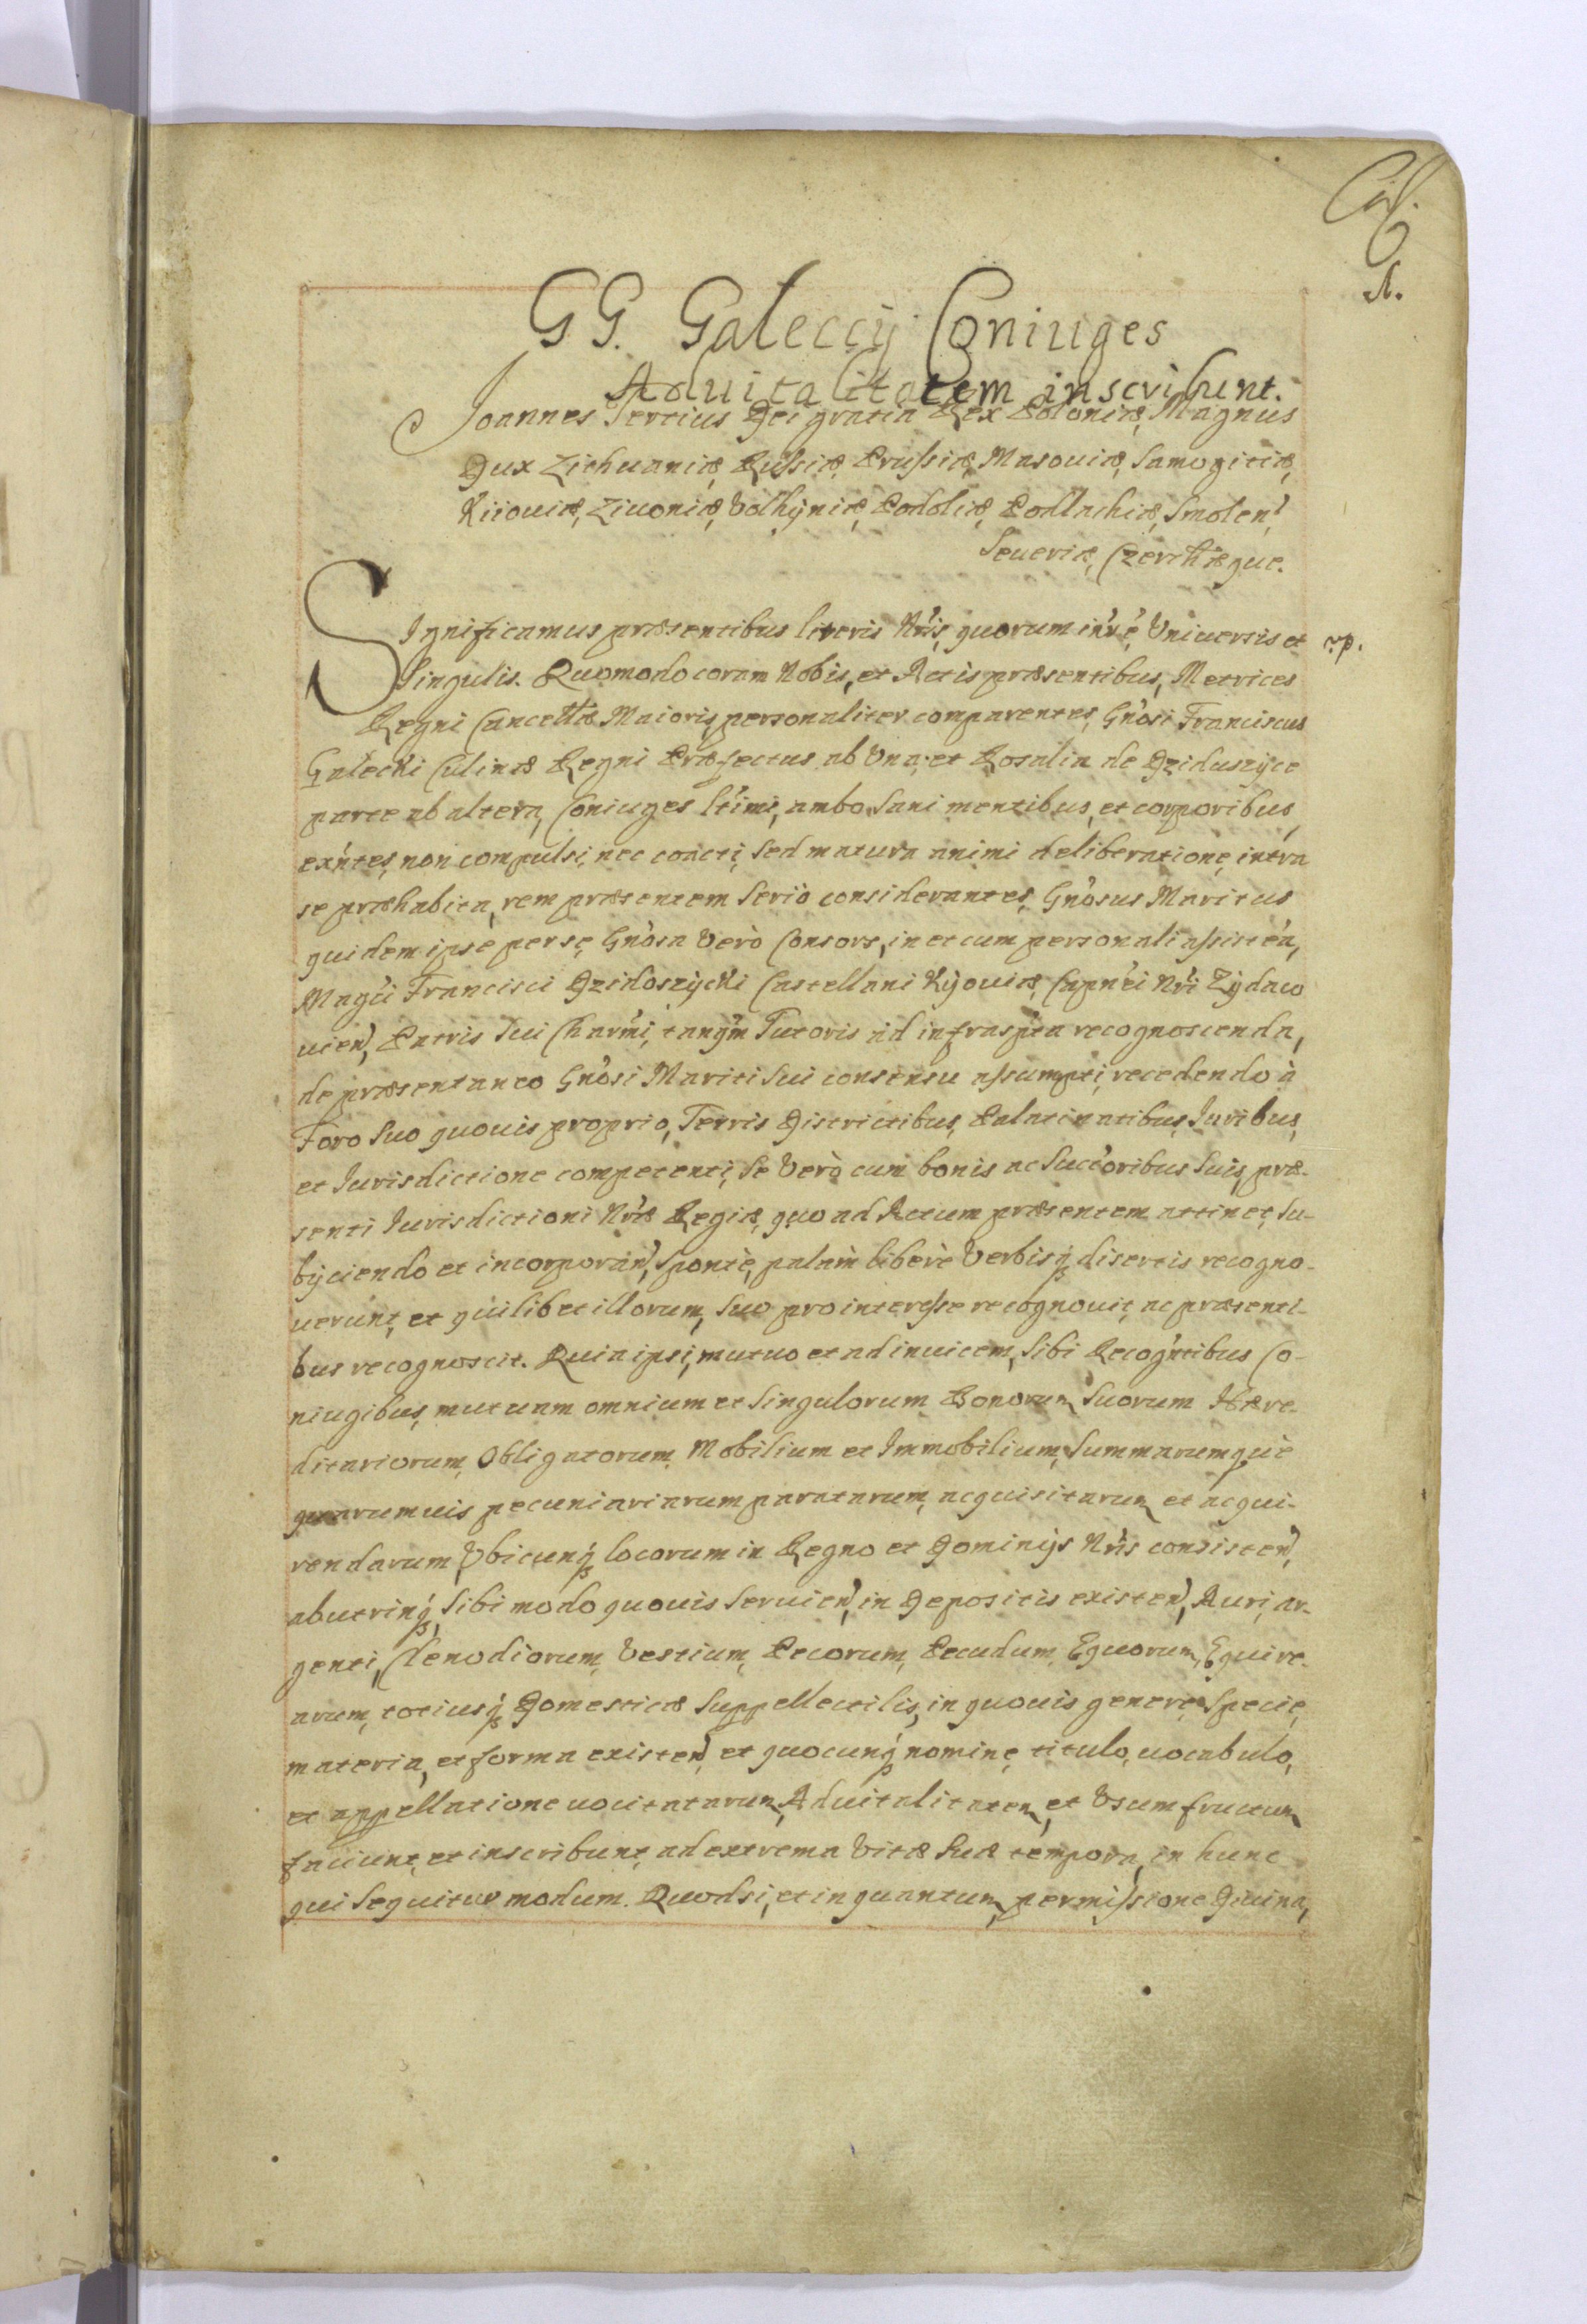 1.
GG. Galeccÿ Coniuges
Aduitalitatem inscribunt.
Joannes Tertius Dei gratia Rex Poloniæ, Magnus
Dux Lithuaniæ, Russiæ, Prussiæ, Masouiæ, Samogitiæ,
Kiiouiæ, Liuoniæ, Volhÿniæ, Podoliæ, Podlachiæ, Smolen̄,
Seueriæ, Czerńhiæque.
SIgnificamus præsentibus literis Nr̄is, quorum int̄ē, Vniuersis et
Singulis. Quomodo coram Nobis, et Actis præsentibus, Metrices
Regni Cancellæ Maioris, personaliter comparentes, Gn̄osi Franciscus
Gałecki Culinæ Regni Præfectus ab Vna, et Rosalia de Dziduszÿce
parte ab altera, Coniuges ltīmi, ambo Sani mentibus, et corporibus,
exn̄tes, non compulsi, nec coacti, Sed matura animi deliberatione, intra
se præhabita, rem præsentem Seriò considerantes, Gn̄osus Maritus
quidem ipse per se, Gn̄osa Verò Consors, in et cum personali assisten̄a,
Magc̄i Francisci Dzidoszÿcki Castellani Kÿouiæ, Capn̄ei Nr̄i Zÿdaco
uien̄, Patris Sui Charm̄i, tanqm̄ Tutoris ad infrasp̄ta recognoscenda,
de præsentaneo Gn̄osi Mariti Sui consensu assumpti, recedendo à
Foro Suo quouis proprio, Terris Districtibus, Palatinatibus, Juribus,
et Jurisdictione competenti, Se Verò cum bonis ac Succ̄oribus Suis, præ-
senti Jurisdictioni Nr̄æ Regiæ, quo ad Actum præsentem attinet, Su-
bÿciendo et incorporan̄, Spontè, palàm liberè Verbisq̨ disertis recogno-
uerunt, et quilibet illorum, Suo pro interesse recognouit, ac præsenti-
bus recognoscit. Quia ipsi, mutuo et ad inuicem, Sibi Recogn̄tibus Co-
niugibus, mutuam omnium et Singulorum Bonorum Suorum Hære-
ditariorum, Obligatorum, Mobilium et Immobilium, Summarumquè
quarumuis pecuniariarum paratarum, acquisitarum et acqui-
rendarum Vbicunq̨ locorum in Regno et Dominÿs Nr̄is consisten̄,
abutrinq̨, Sibi modo quouis Seruien̄, in Depositis existen̄, Auri, ar-
genti, Clenodiorum, Vestium, Pecorum, Pecudum, Equorum, Equire-
arum, totiusq̨ Domesticæ Suppellectilis, in quouis genere, Specie,
materia, et forma existen̄, et quocunq̨ nomine, titulo, uocabulo,
et appellatione uocitatarum, Aduitalitatem, et Vsumfructum
faciunt, et inscribunt, ad extrema Vitæ Suæ tempora, in hunc
qui Sequitur modum. Quodsi, et in quantum, permissione Diuina,